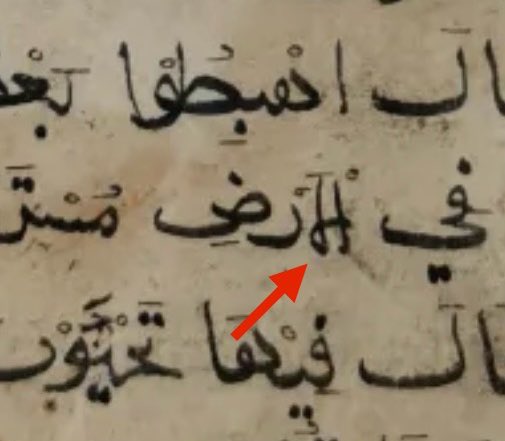 ال اهْبِطُوا بَعْضُ
فِي الْأَرْضِ مُسْتَقَ
الَ فِيهَا تَحْيَوْنَ